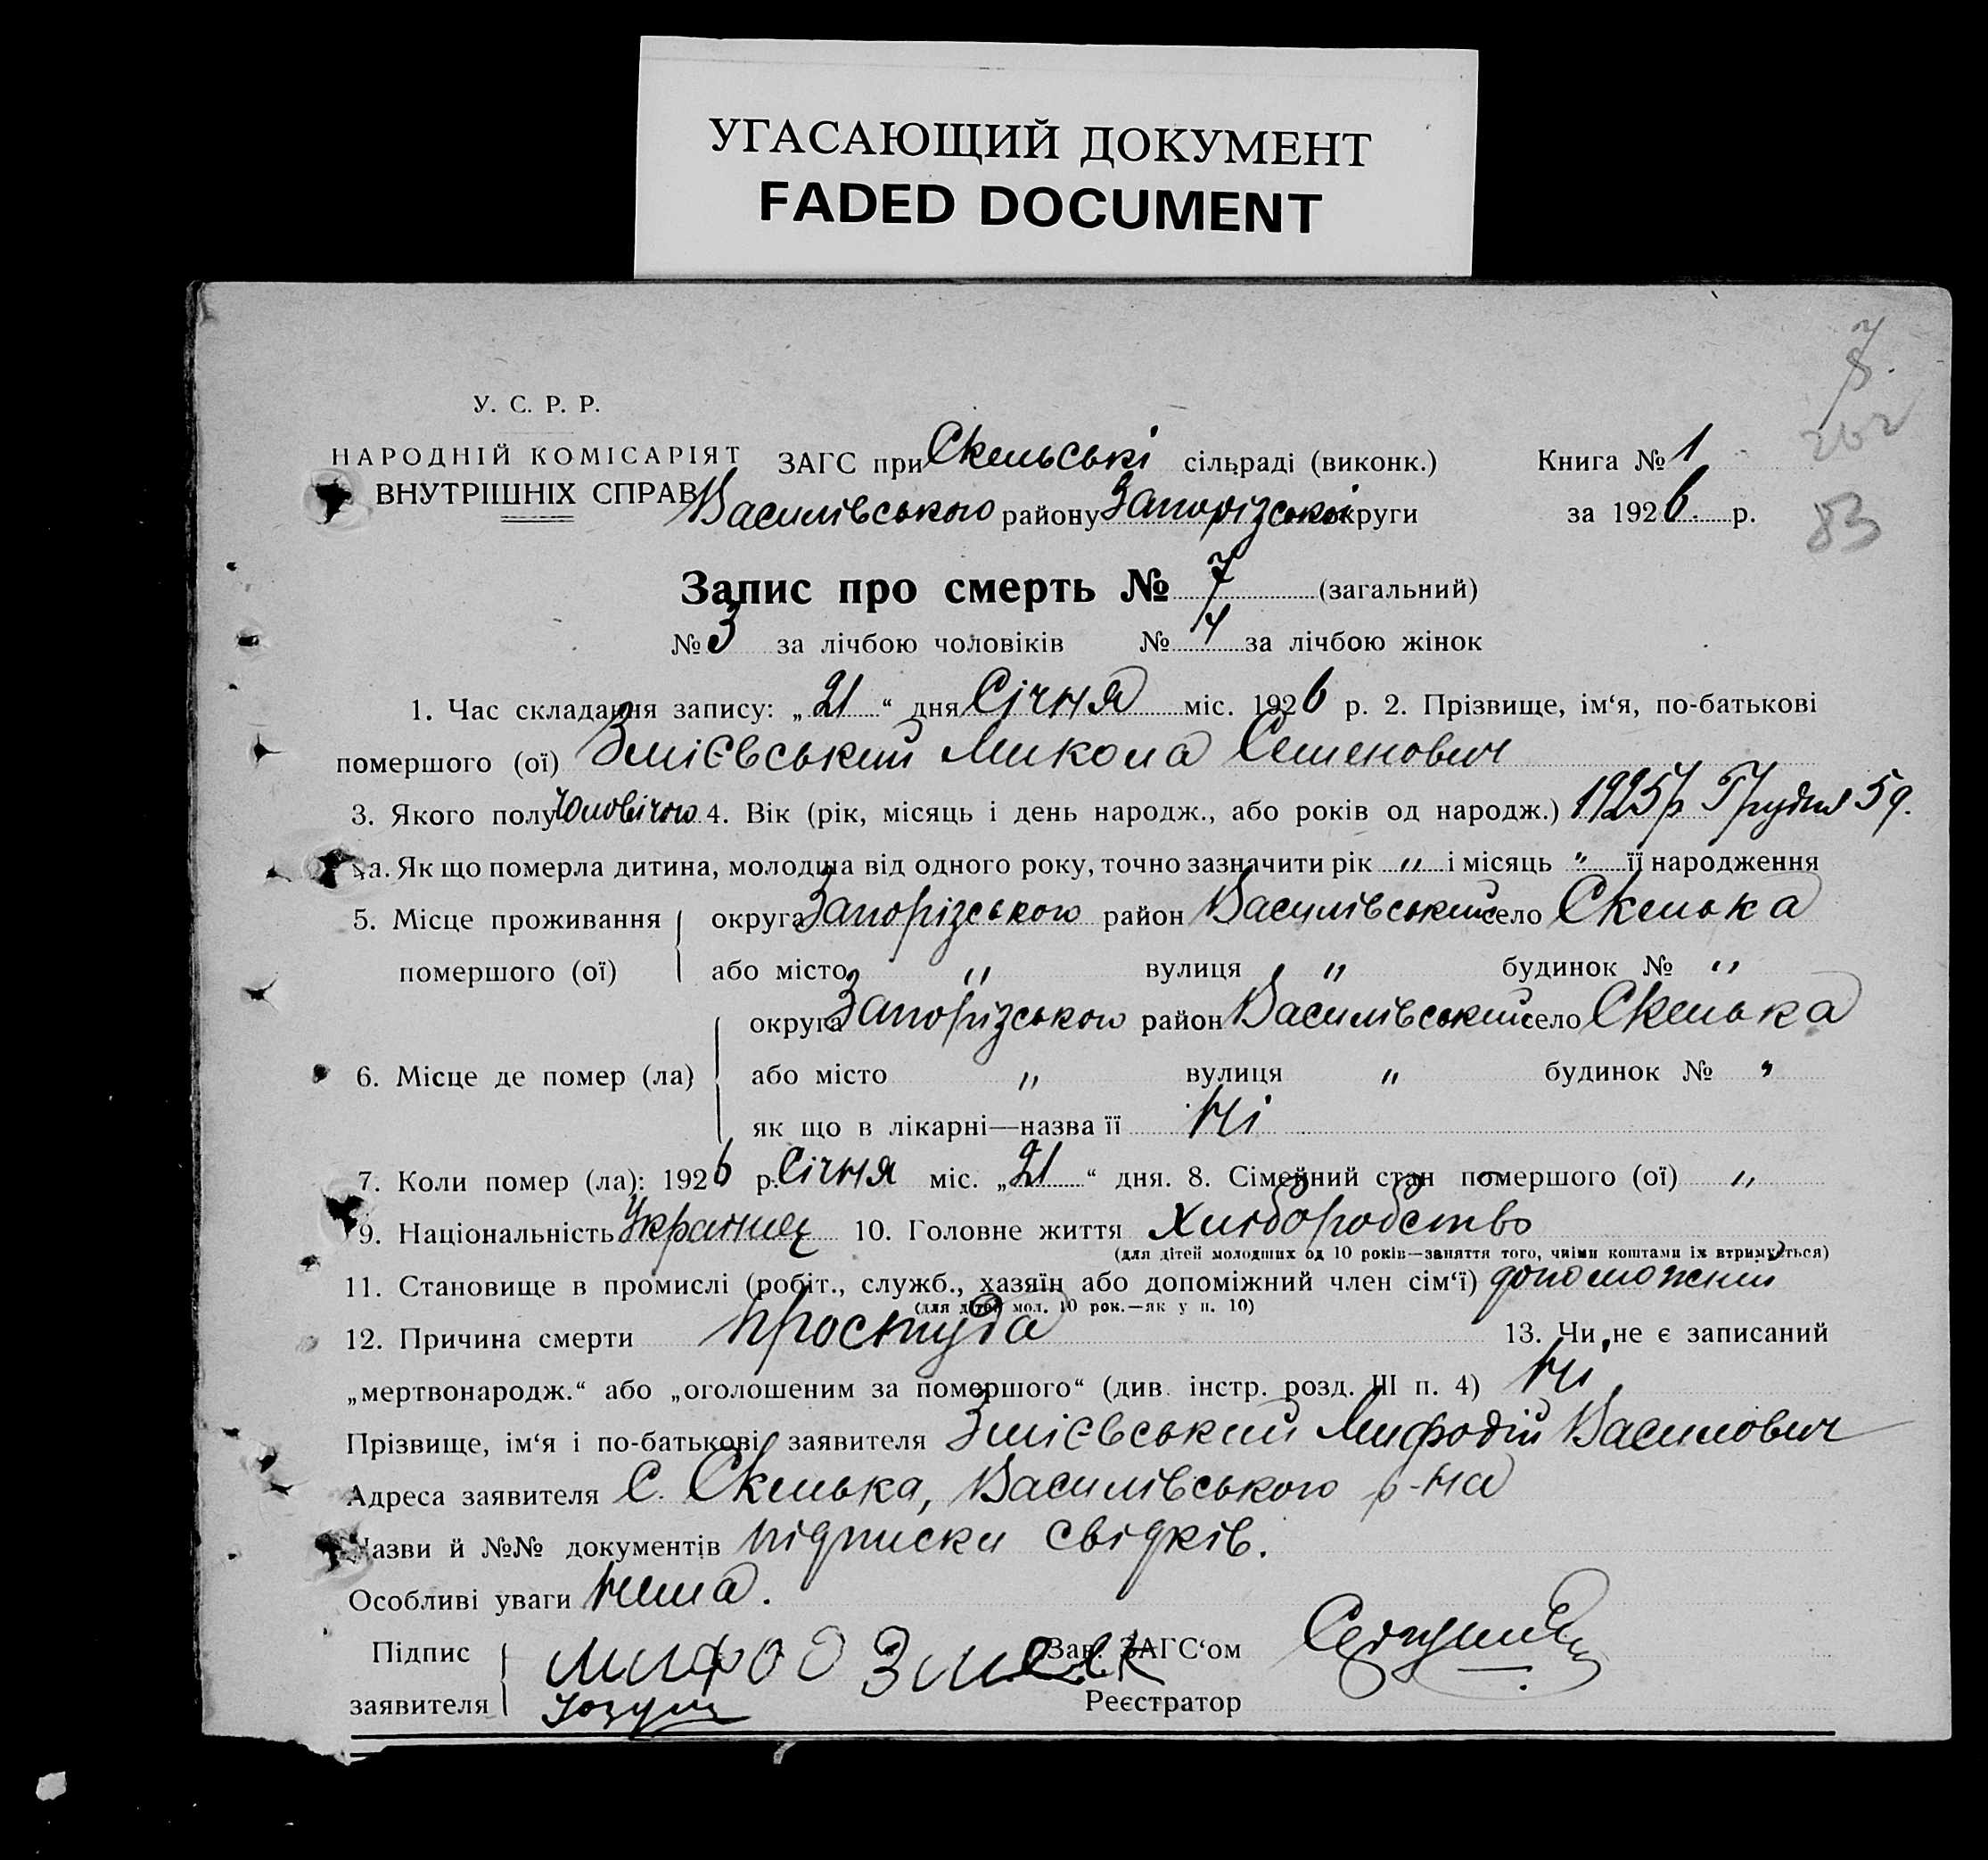 УГАСАЮЩИЙ ДОКУМЕНТ
FADED DOCUMENT
7
8.
202
83
У. С. Р. Р.
НАРОДНІЙ КОМІСАРІЯТ
ВНУТРІШНІХ СПРАВ
ЗАГС при Скельські сільраді (виконк.) Книга № 1
Василівського району Запорізської округи за 1926 р.
Запис про смерть № 7 (загальний)
№ 3 за лічбою чоловіків № 4 за лічбою жінок
1. Час складання запису: „21“ дня Січня міс. 1926 р. 2. Прізвище, ім‘я, по-батькові
помершого (ої) Змієвський Микола Семенович
3. Якого полу Чоловічого 4. Вік (рік, місяць і день народж., або років од народж.) 1925р Грудня 5д.
4а. Як що померла дитина, молодша від одного року, точно зазначити рік „ і місяць „ її народження
5. Місце проживання помершого (ої) округа Запорізського район Василівський село Скелька
або місто „ вулиця „ будинок № „
6. Місце де помер (ла) округа Запорізського район Василівський село Скелька
або місто „ вулиця „ будинок № „
як що в лікарні—назва її Ні
7. Коли помер (ла): 1926 р. Січня міс. „21“ дня. 8. Сімейний стан помершого (ої) „
9. Національність Украинец 10. Головне життя Хліборобство
(для дітей молодших од 10 років—заняття того, чиїми коштами їх втримується)
11. Становище в промислі (робіт., служб., хазяїн або допоміжний член сім‘ї) допоможний
(для дітей мол. 10 рок.—як у п. 10)
12. Причина смерти простуда 13. Чи не є записаний
„мертвонародж.“ або „оголошеним за помершого“ (див. інстр. розд. III п. 4) Ні
Прізвище, ім‘я і по-батькові заявителя Змієвський Мифодій Василович
Адреса заявителя С. Скелька, Василівського р-на
Назви й №№ документів підписки свідків.
Особливі уваги Нема.
Підпис заявителя Мифод Змеевк
Зав. ЗАГС‘ом
Реєстратор